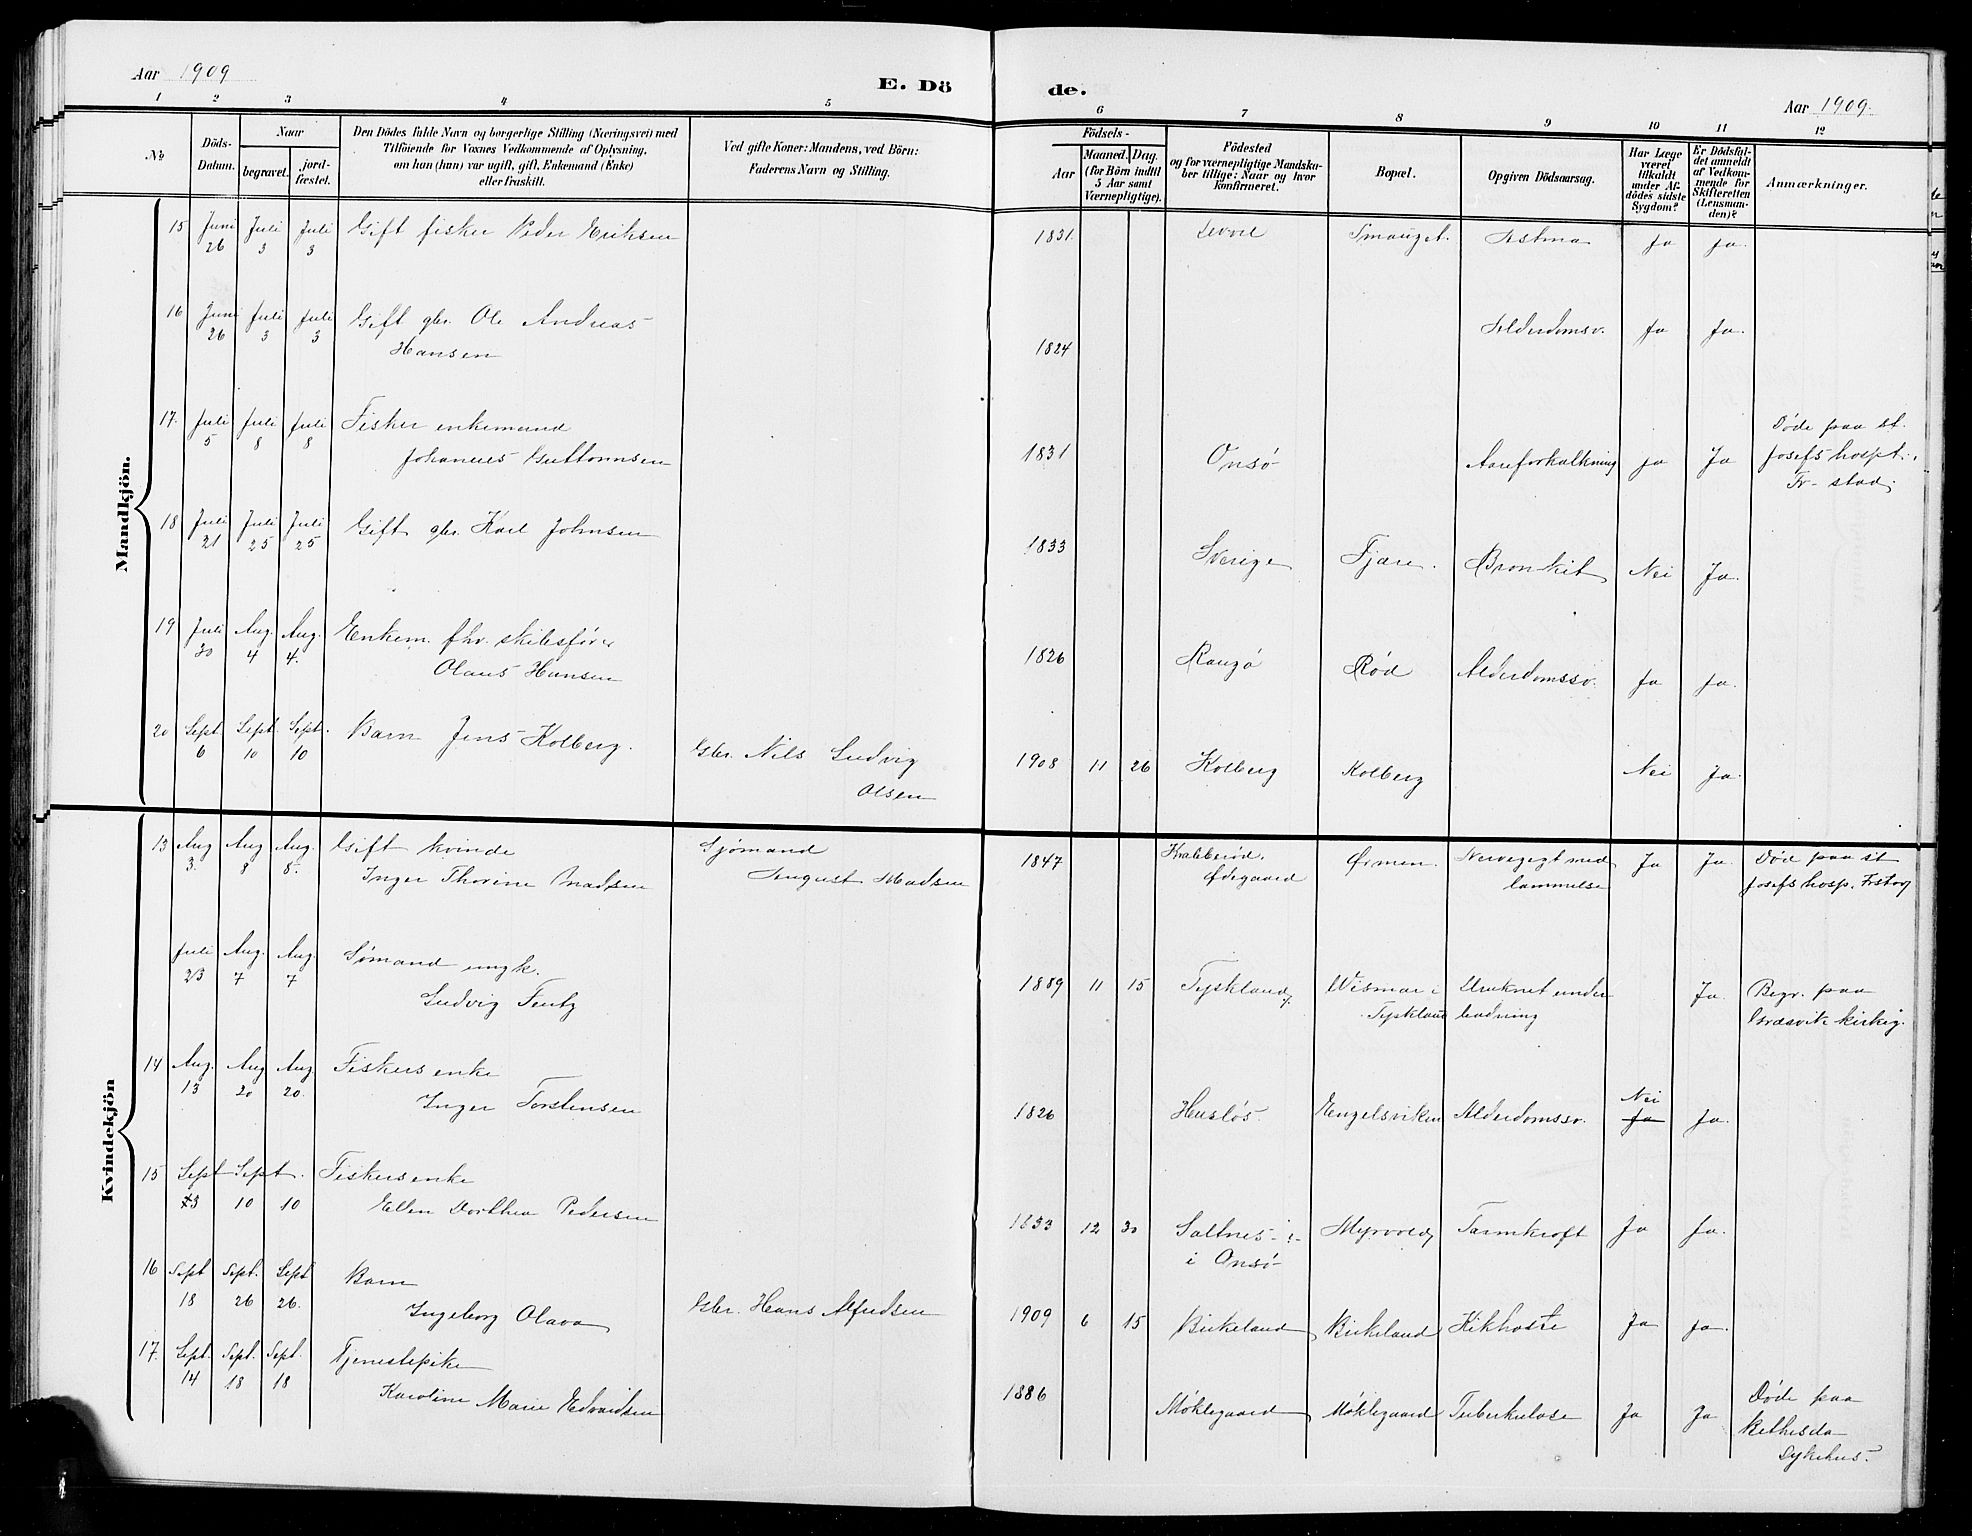 Aar 1909
E. Dö
de.
Aar 1909.
1 2 3 4 5 6 7 8 9 10 11 12
No
Döds-Datum.
Naar
begravet.
jord-fæstet.
Den Dödes fulde Navn og borgerlige Stilling (Næringsvei) med
Tilföiende for Voxnes Vedkommende af Oplysning,
om han (hun) var ugift, gift, Enkemand (Enke)
eller fraskilt.
Ved gifte Koner: Mandens, ved Börn:
Faderens Navn og Stilling.
Födsels-
Aar
Maaned. Dag.
(for Börn indtil
5 Aar samt
Værnepligtige).
Födested
og for værnepligtige Mandska-
ber tillige: Naar og hvor
konfirmeret.
Bopæl.
Opgiven Dödsaarsag.
Har Læge
været
tilkaldt
under Af-
dödes sidste
Sygdom?
Er Dödsfal-
det anmeldt
af Vedkom-
mende for
Skifteretten
(Lensman-
den)?
Anmærkninger.
Mandkjön.
15 Juni 26 Juli 3 Juli 3 Gift fisker Peder Eriksen 1831. Smauget. Astma Ja Ja.
16 Juni 26 Juli 3 Juli 3 Gift gbr. Ole Andreas
Hansen 1824 Alderdomsv. Ja Ja.
17. Juli 5 Juli 8 Juli 8 Fisker enkemand
Johannes Guttormsen 1831 Onsø Aareforkalkning Ja Ja Døde paa st.
Josefs hospt.
Fr-stad.
18 Juli 21 Juli 25 Juli 25 Gift gbr. Karl Johnsen 1833 Sverige Fjære. Bronkit Nei Ja.
19 Juli 30 Aug. 4 Aug. 4. Enkem. fhv. skibsfører
Olaus Hansen 1826 Raugø Rød Alderdomssv. Ja Ja.
20 Sept. 6 Sept. 10 Sept. 10 Barn Jens Kolberg. Gbr. Nils Ludvig
Olsen 1908 11 26 Kolberg Kolberg Nei Ja.
Kvindekjön
13 Aug 3. Aug 8 Aug. 8. Gift kvinde
Inger Thorine Madsen Sjømand
August Madsen 1847 Krabberød.
Ødegaard Ørmen. Nervegigt med
lammelse Ja Ja. Død paa st
Josefs hosp. Frstad
Juli 23 Aug. 7 Aug. 7 Sømand ungk.
Ludvig Fentz 1889 11 15 Tyskland Wismar i
Tyskland Druknet under
badning Ja. Begr. paa
Græsvik kirkeg.
14 Aug. 13 Aug 20 Aug 20. Fiskers enke
Inger Torstensen 1826 Husløs. Engelsviken Alderdomssv. Nei
Ja Ja.
15 Sept 3 Sept. 10 10 Fiskers enke
Ellen Dorthea Pedersen 1833 12 30 Saltnes
i Onsø Myrvold Tarmkræft Ja Ja.
16 Sept 18 Sept. 26 Sept 26. Barn
Ingeborg Olava Gbr. Hans Alfredsen 1909 6 15 Birkeland Birkeland Kikhoste Ja Ja.
17. Sept. 14 Sept. 18 Sept. 18 Tjenestepike
Karoline Marie Edvardsen 1886 Møklegaard Møklegaard Tuberkulose Ja Ja Døde paa
Bethesda
Sykehus.